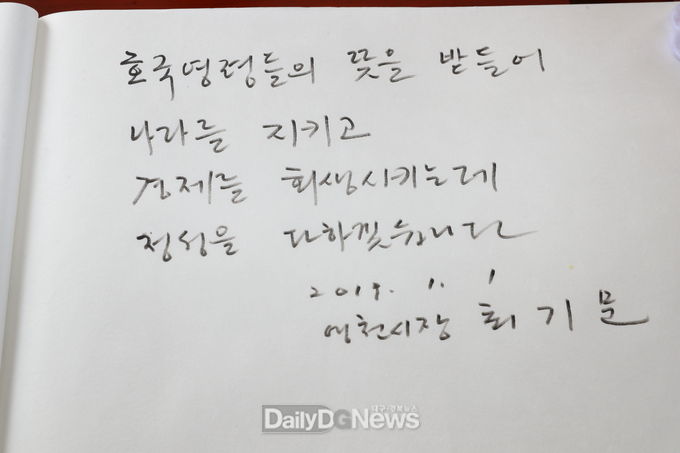 호국영령들의 뜻을 받들어
나라를 지키고
경제를 회생시키는데
정성을 다하겠습니다
2019. 1. 1
영천시장 최기문
대구/경북뉴스
DailyDGNews